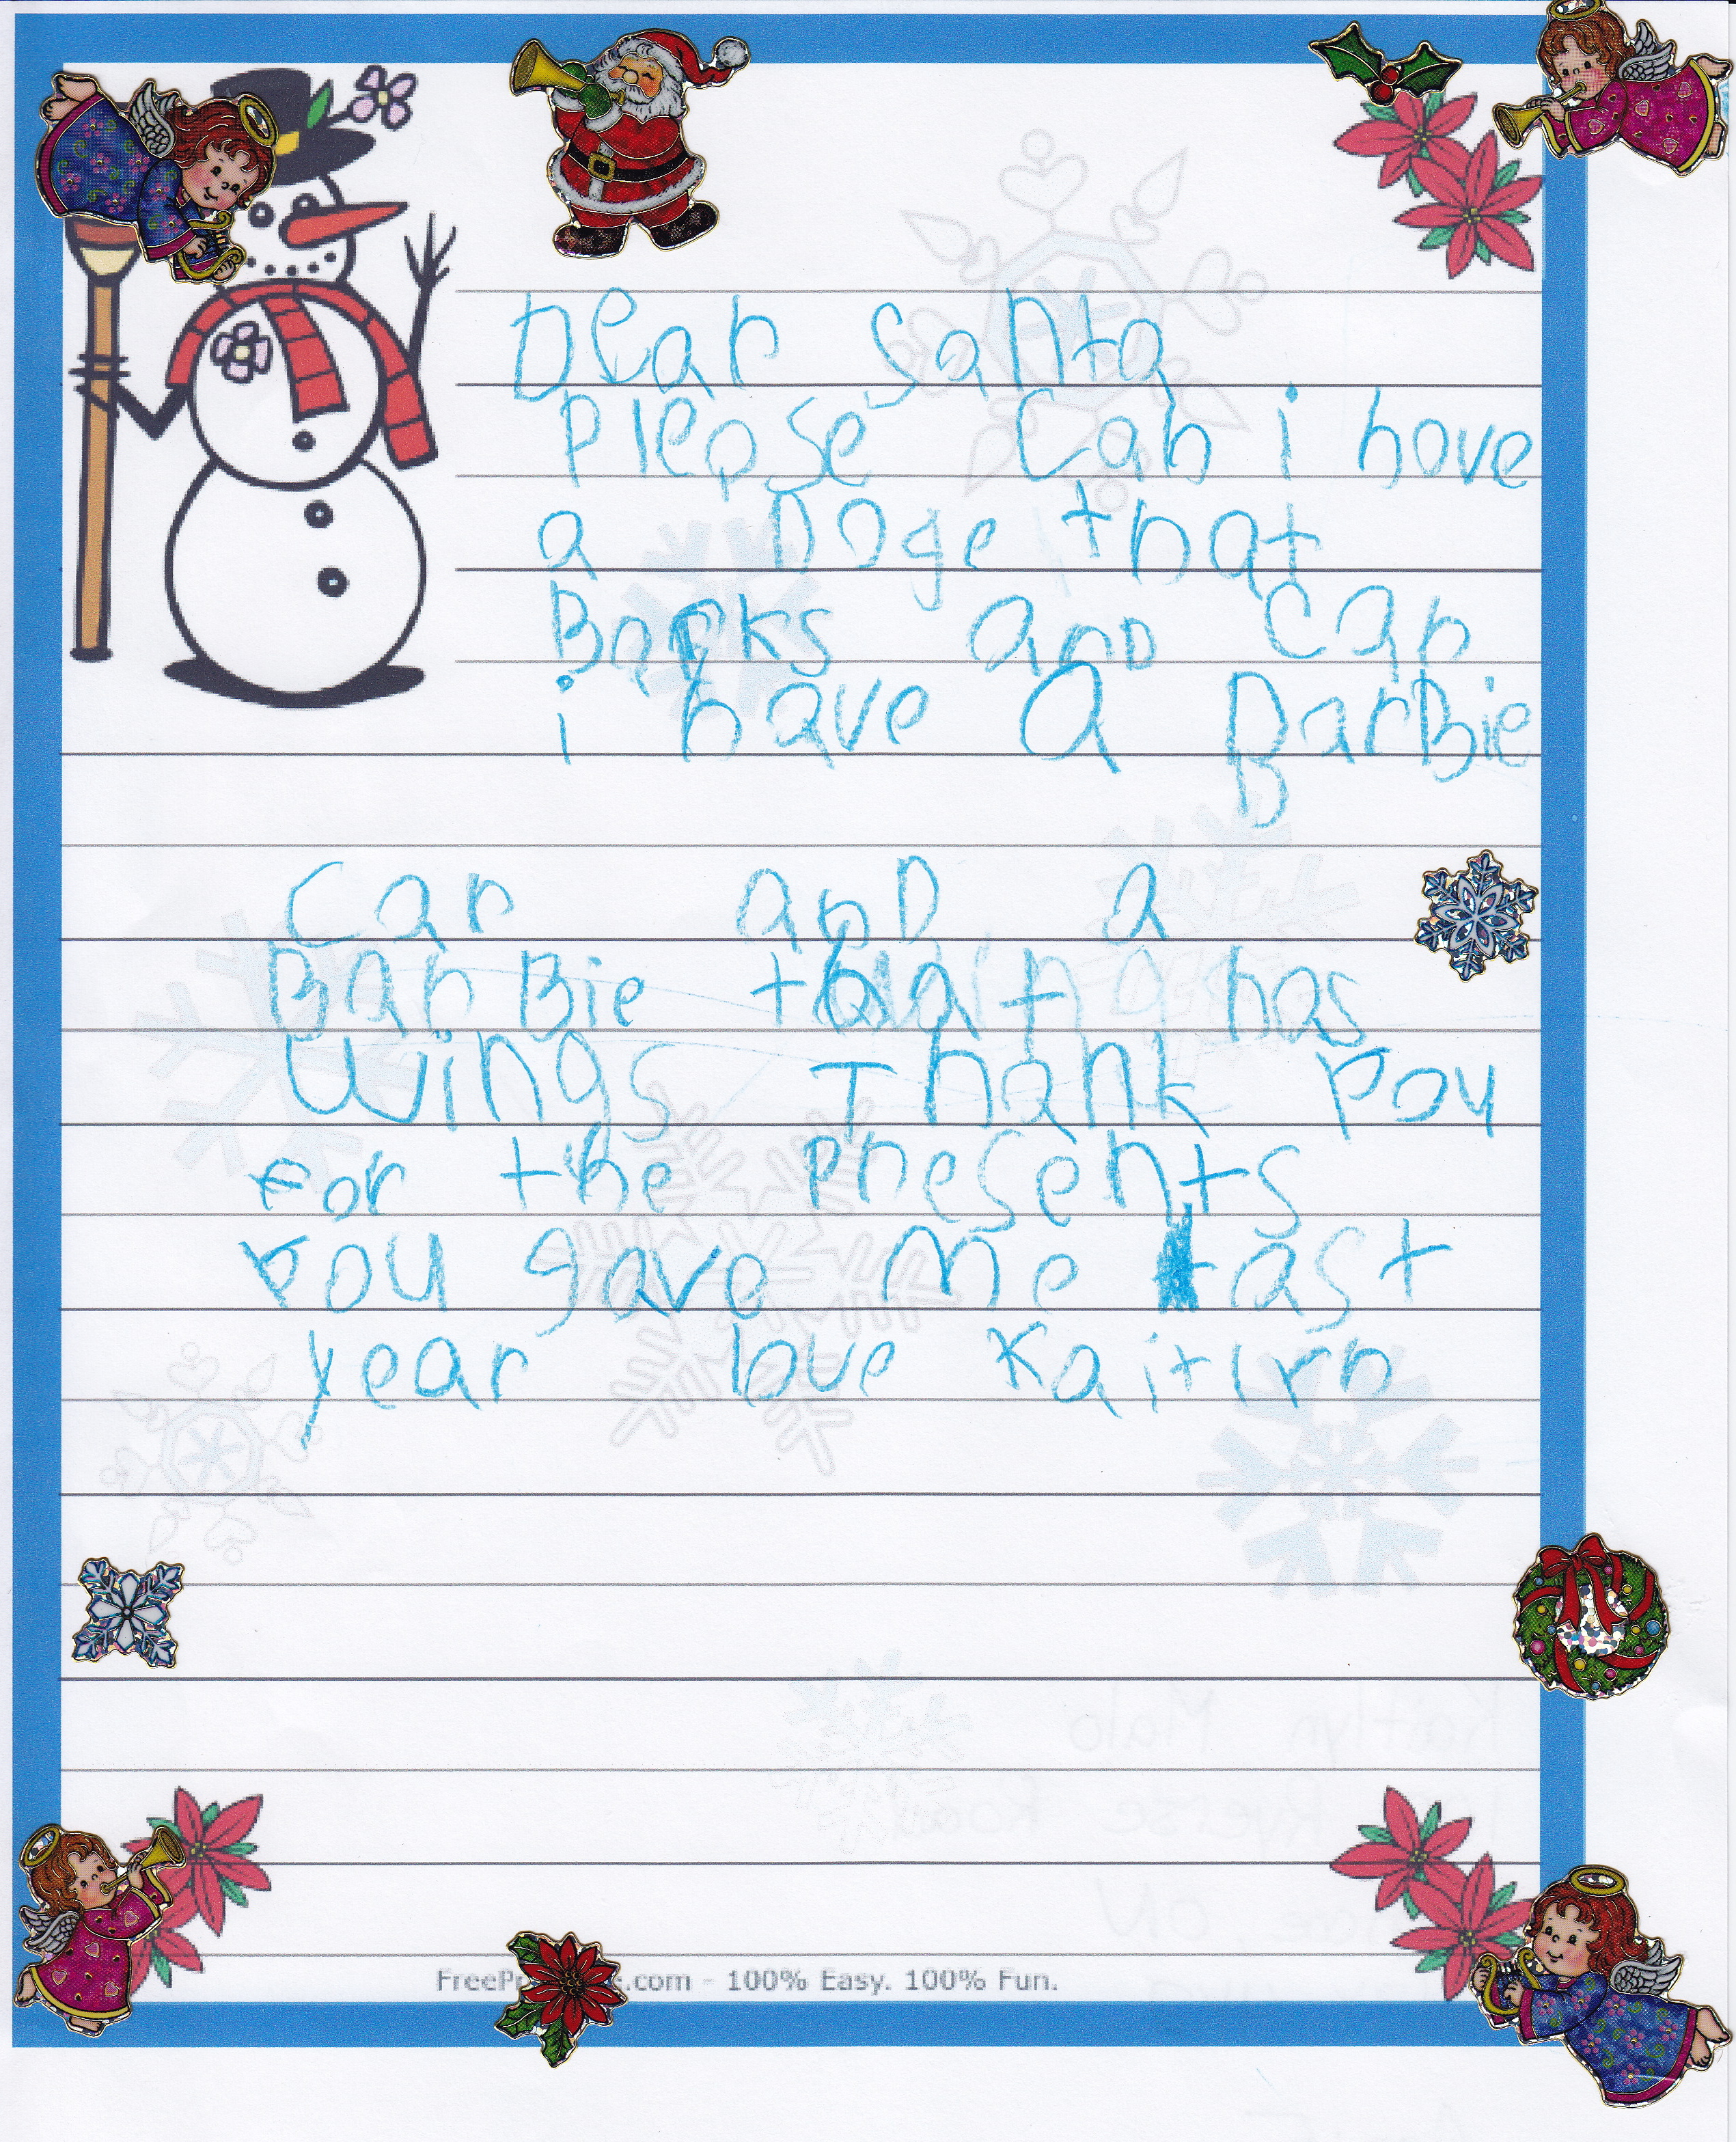 Dear Santa
Please Can i have
a Doge that
Barks and can
i have a BarBie
Car and a
BarBie that has
Wings Thank you
for the presents
you gave me last
year love Kaitlyn
100% Easy. 100% Fun.